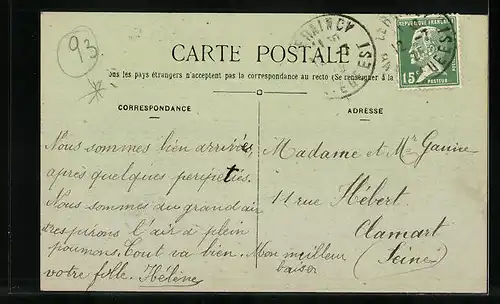 93
CARTE POSTALE
ous les pays étrangers n'acceptent pas la correspondance au recto (Se renseigner à la
CORRESPONDANCE
ADRESSE
REPUBLIQUE FRANÇAISE
15c
PASTEUR
POSTES
Nous sommes bien arrivés,
après quelques peripeties.
Nous sommes au grand air
et respirons l'air à plein
poumons. Tout va bien. Mon meilleur
baiser
votre fille. Hélène
Madame et Mr
11 rue Hébert
Clamart
(Seine)